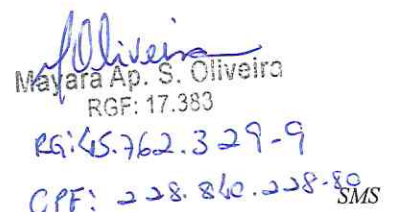 Oliveira
Mayara Ap. S. Oliveira
RGF: 17.383
RG: 45.762.329-9
CPF: 228.840.228-80
SMS